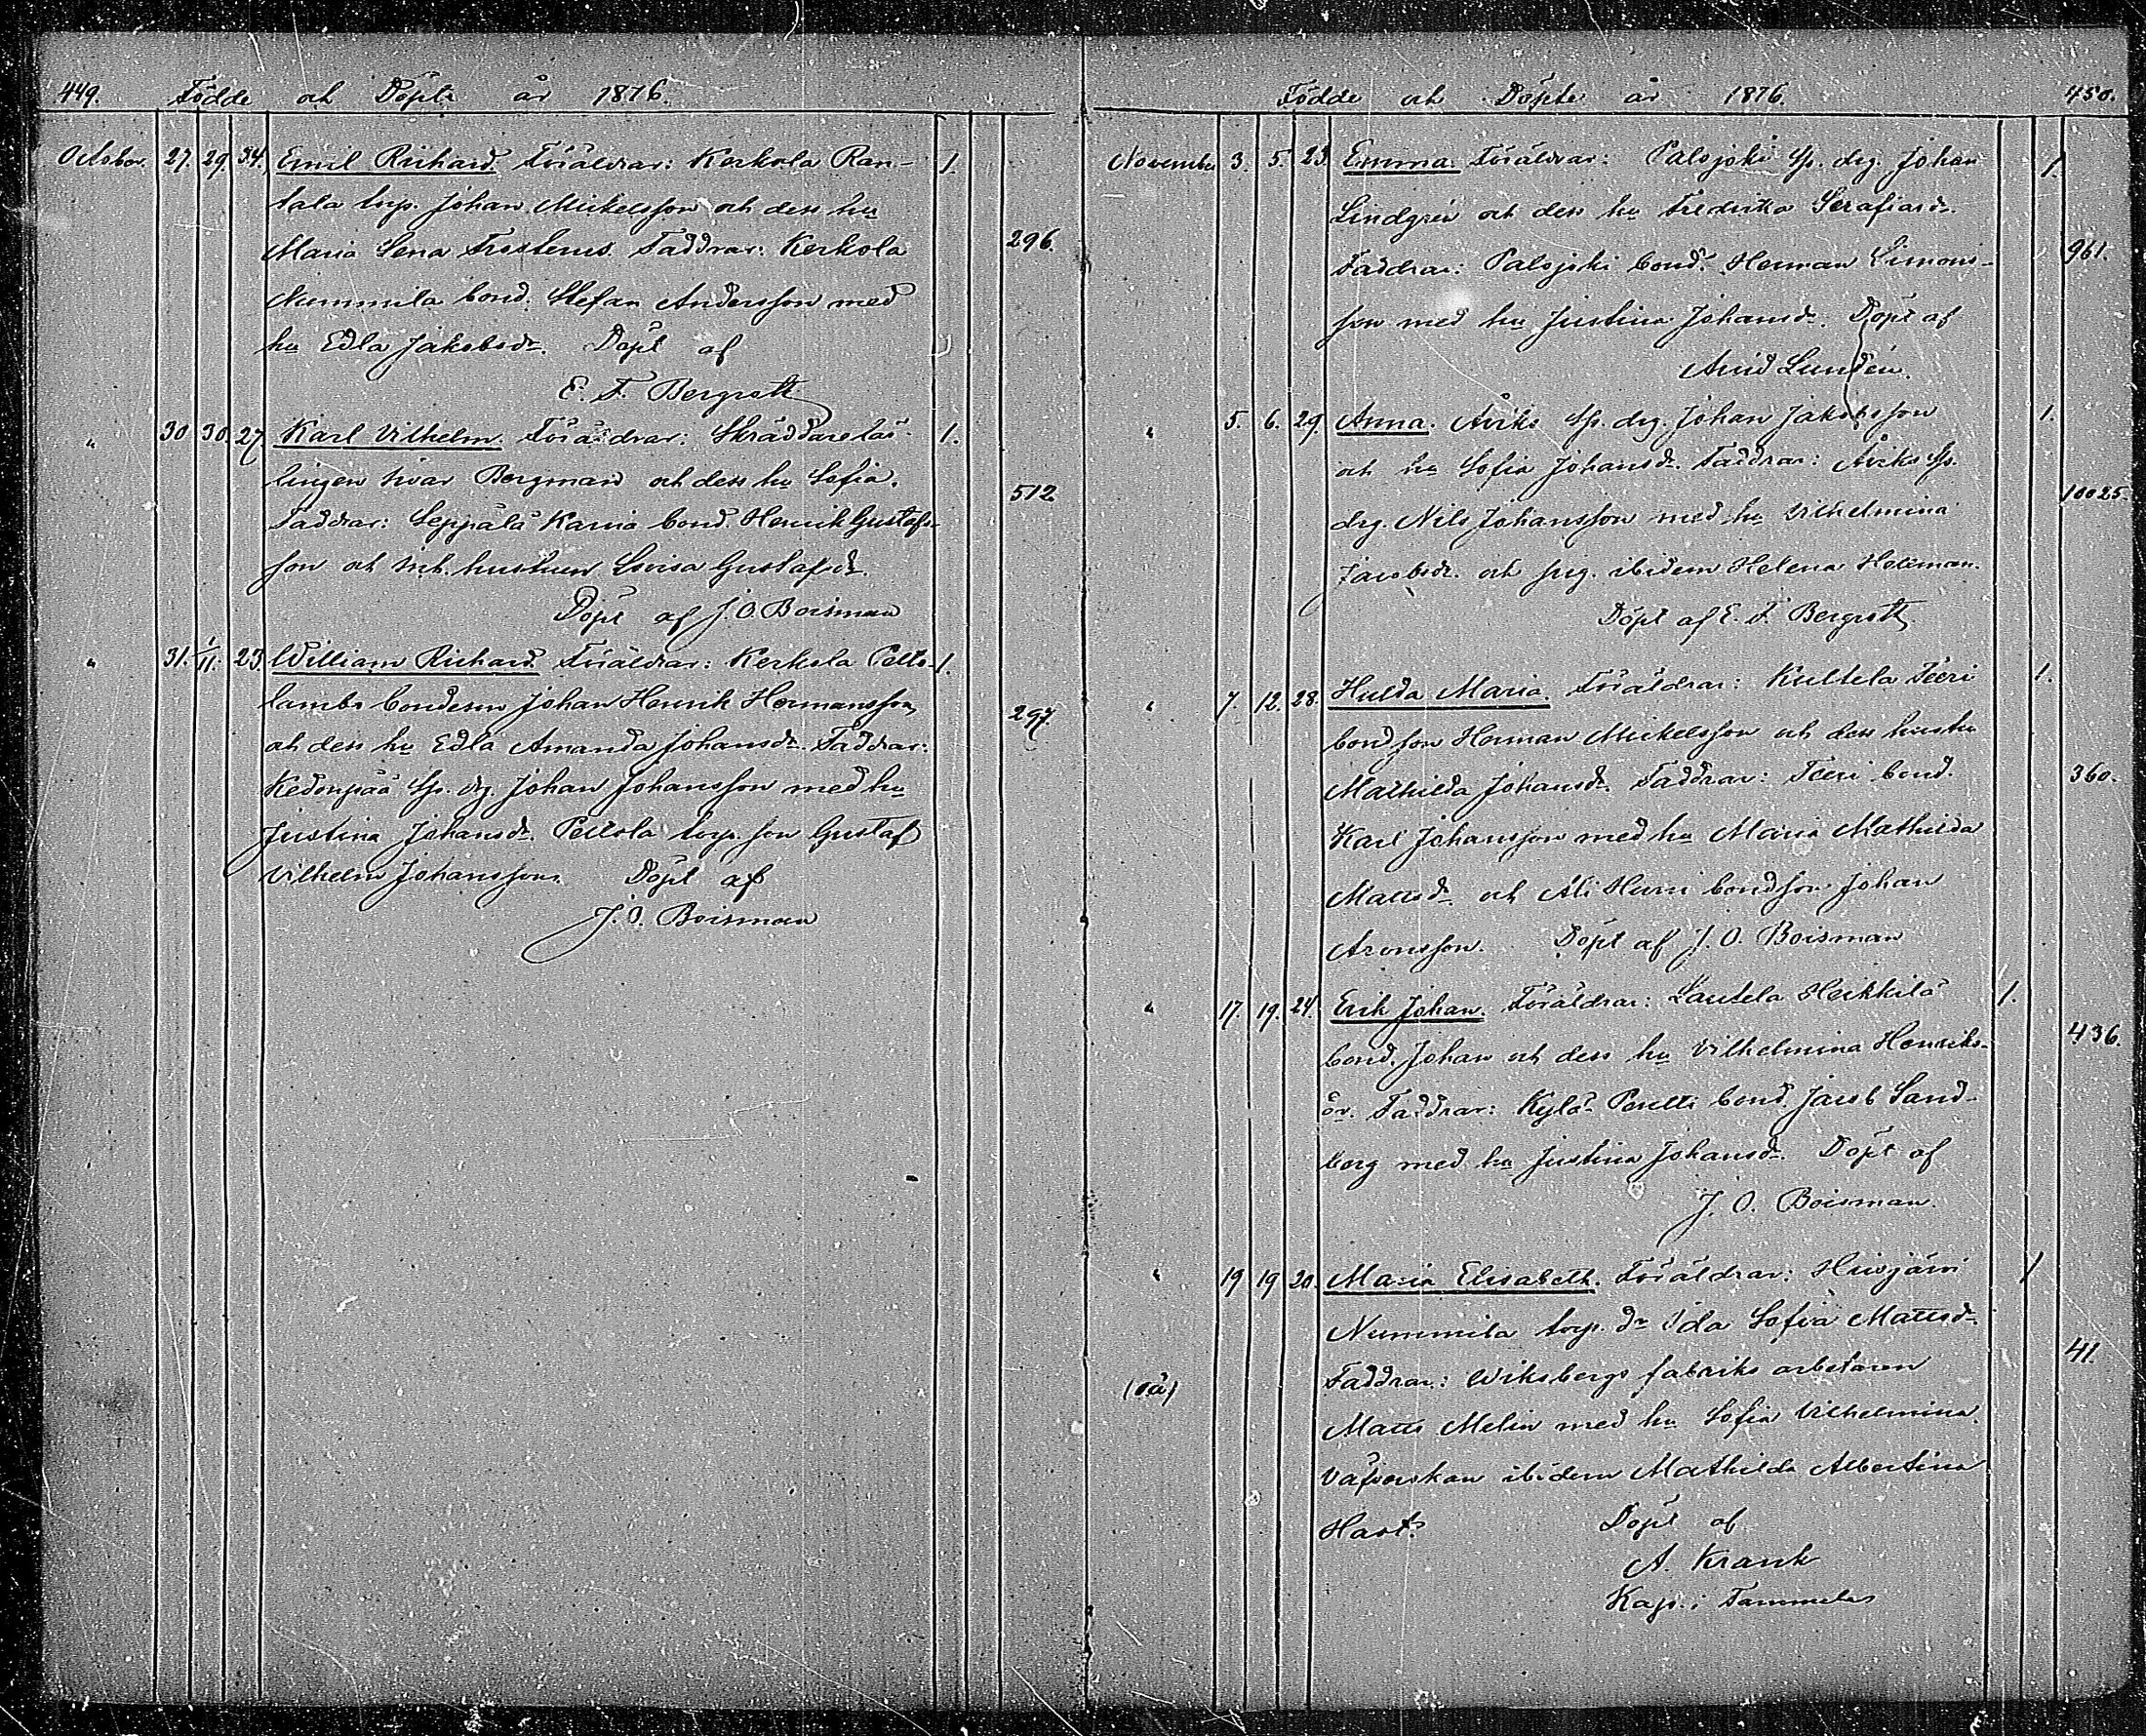 449. Födde och Döpte år 1876.
October. 27. 29. 34. Emil Richard. Föräldrar: Kerkola Ran- 1.
tala torp. Johan Mickelsson och dess hu
Maria Lena Fresterus. Faddrar: Kerkola 296.
Nummila bond. Stefan Andersson med
hu Edla Jakobsdr. Döpt af
E. F. Bergrott
" 30 30. 27 Karl Vilhelm. Föräldrar: Skräddarelär- 1.
lingen Ivar Bergman och dess hu Sofia.
Faddrar: Seppälä Karria bond. Henrik Gustafs- 512
son och inh. hustrun Lovisa Gustafsdr.
Döpt af J. O. Boisman
" 31. 1/11. 23. William Richard. Föräldrar: Kerkola Pelto- 1.
lambi bondeson Johan Henrik Hermansson,
och dess hu Edla Amanda Johansdr. Faddrar: 297.
Kedonpää sp. drg. Johan Johansson med hu
Justina Johansdr. Peltola torp. son Gustaf
Vilhelm Johansson. Döpt af
J. O. Boisman
Födde och Döpte år 1876. 450.
November 3. 5. 23. Emma. Föräldrar: Palojoki sp. drg. Johan 1.
Lindgrén och dess hu Fredrika Serafiasdr.
Faddrar: Palojoki bond. Herman Simons- 961.
son med hu Justina Johansdr. Döpt af
Arvid Lundén.
" 5. 6. 29. Anna. Äiriks sp. drg. Johan Jakobsson 1.
och hu Sofia Johansdr. Faddrar: Äiriks sp.
drg. Nils Johansson med hu Vilhelmina 10025.
Jacobsdr. och pig. ibidem Helena Heleman.
Döpt af E. F. Bergrott
" 7. 12. 28. Hulda Maria. Föräldrar: Kultela Teeri 1.
bondson Herman Mickelsson och dess hustru
Mathilda Johansdr. Faddrar: Teeri bond. 360.
Karl Johansson med hu Maria Mathilda
Mattsdr och Ali Hurri bondson Johan
Aronsson. Döpt af J. O. Boisman
" 17. 19. 24. Erik Johan. Föräldrar: Lautela Heikkilä 1.
bond. Johan och dess hu Vilhelmina Henriks- 436.
dr. Faddrar: Kylä-Pentti bond. Jacob Sand-
berg med hu Justina Johansdr. Döpt af
J. O. Boisman.
" 19 19 20. Maria Elisabeth. Föräldrar: Hirsjärvi 1
Nummila torp. dr Ida Sofia Mattsdr.
(oä) Faddrar: Wiksbergs fabriks arbetaren 41.
Matts Melin med hu Sofia Vilhelmina.
Väfverskan ibidem Mathilda Albertina
Hast. Döpt af
A. Krank
Kap. i Tammela